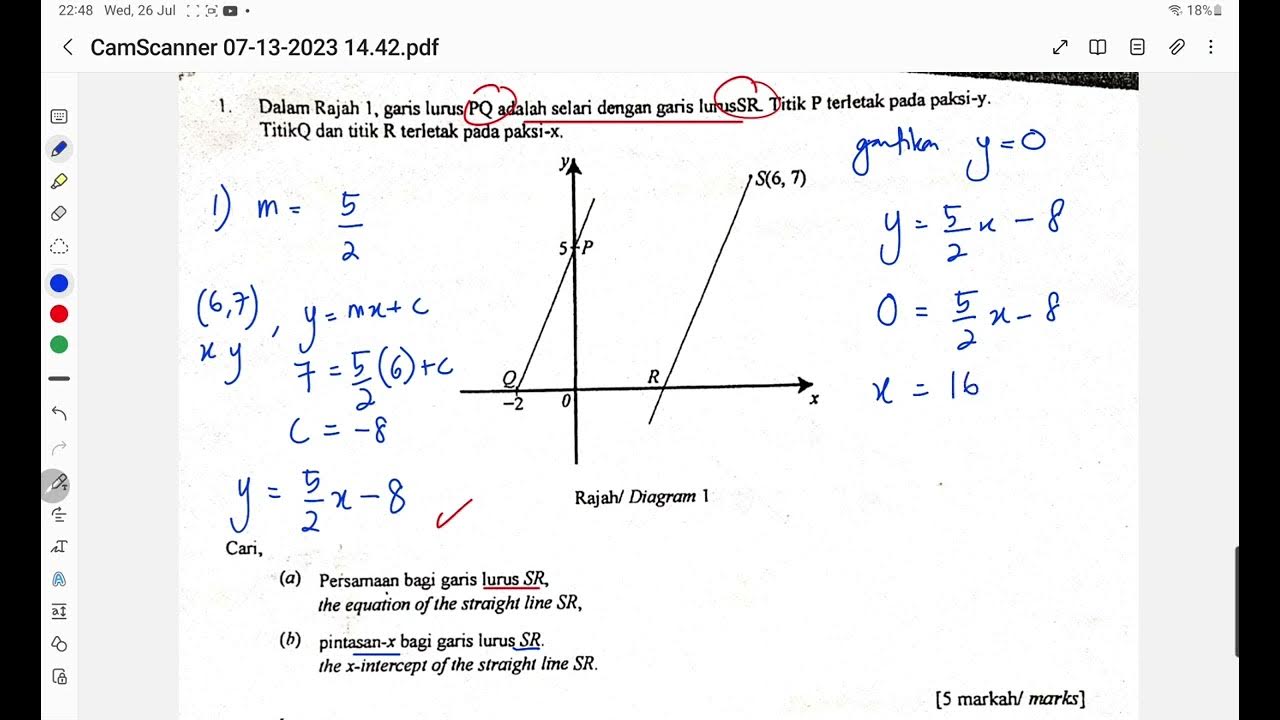 22:48 Wed, 26 Jul
18%
CamScanner 07-13-2023 14.42.pdf
1. Dalam Rajah 1, garis lurus PQ adalah selari dengan garis lurusSR. Titik P terletak pada paksi-y.
TitikQ dan titik R terletak pada paksi-x.
gantikan y = 0
1) m = 5/2
y
S(6, 7)
5 P
y = 5/2 x - 8
(6,7), y = mx + c
x y
7 = 5/2 (6) + c
0 = 5/2 x - 8
Q R
-2 0 x
x = 16
c = -8
y = 5/2 x - 8
Rajah/ Diagram 1
Cari,
(a) Persamaan bagi garis lurus SR,
the equation of the straight line SR,
(b) pintasan-x bagi garis lurus SR.
the x-intercept of the straight line SR.
[5 markah/ marks]